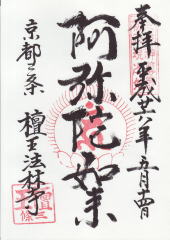 奉拝 平成廿八年五月十四日
阿弥陀如来
京都三条 檀王法林寺